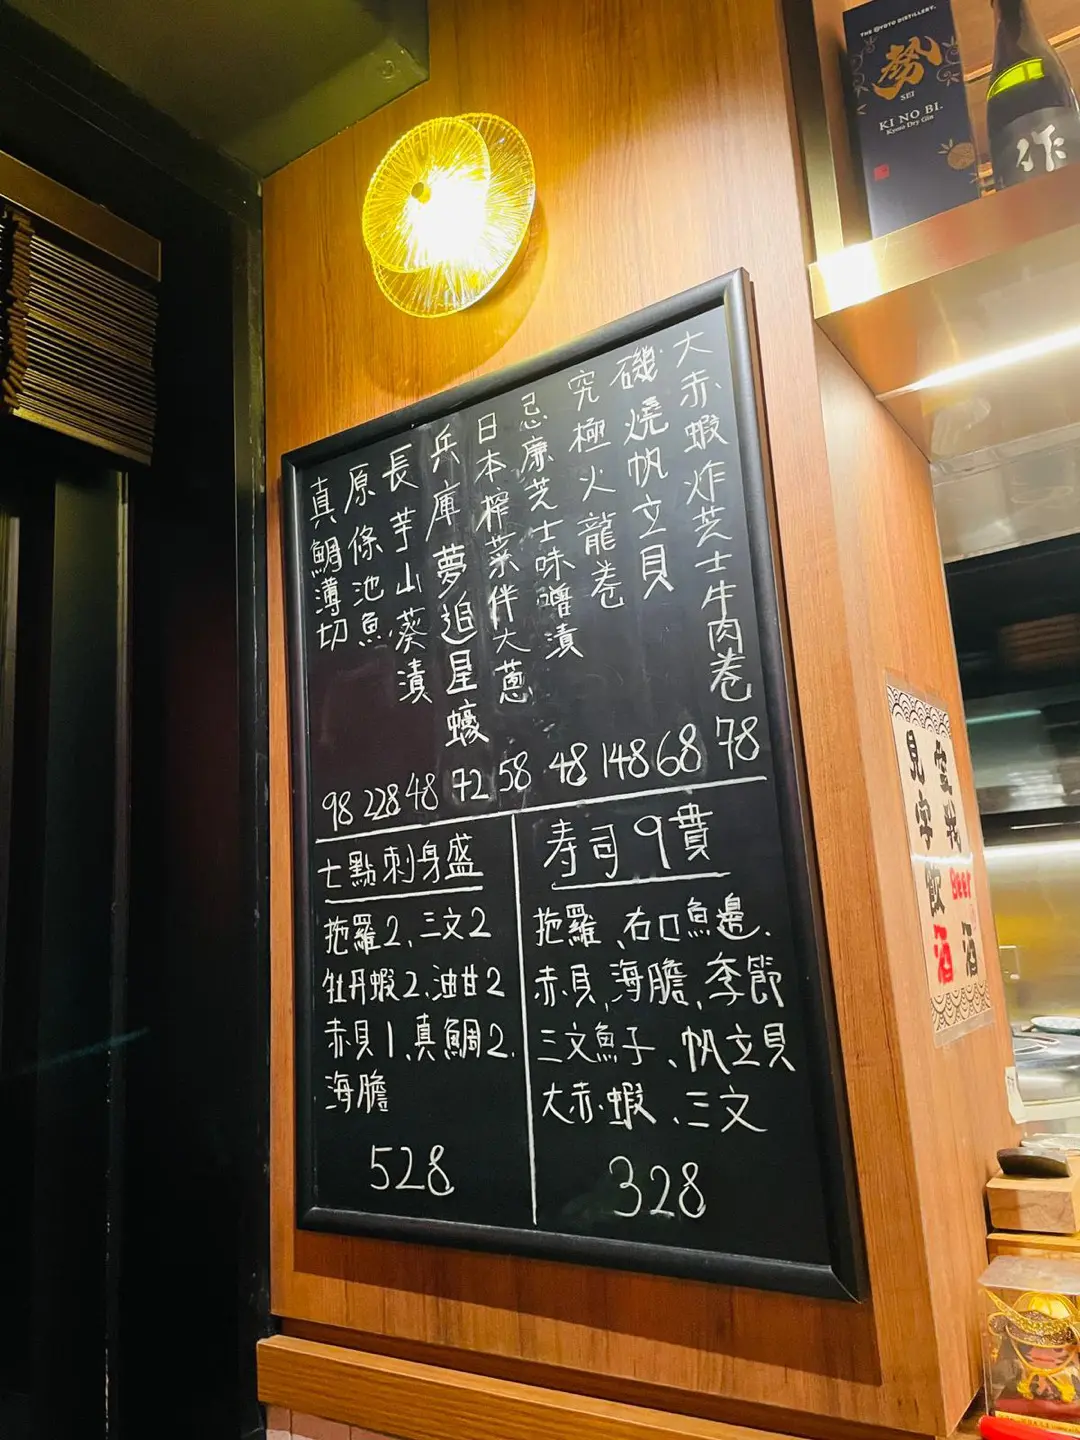 THE KYOTO DISTILLERY.
勢
SEI
KI NO BI.
Kyoto Dry Gin
作
大赤蝦炸芝士牛肉卷 78
磯燒帆立貝 68
究極火龍卷 148
忌廉芝士味噌漬 48
日本榨菜伴大蔥 58
兵庫夢追星蠔 72
長芋山葵漬 48
原條池魚 228
真鯛薄切 98
七點刺身盛
拖羅2、三文2
牡丹蝦2、油甘2
赤貝1、真鯛2.
海膽
528
寿司9貫
拖羅、右口魚邊、
赤貝、海膽、季節
三文魚子、帆立貝
大赤蝦、三文
328
見字飲酒
Beer酒